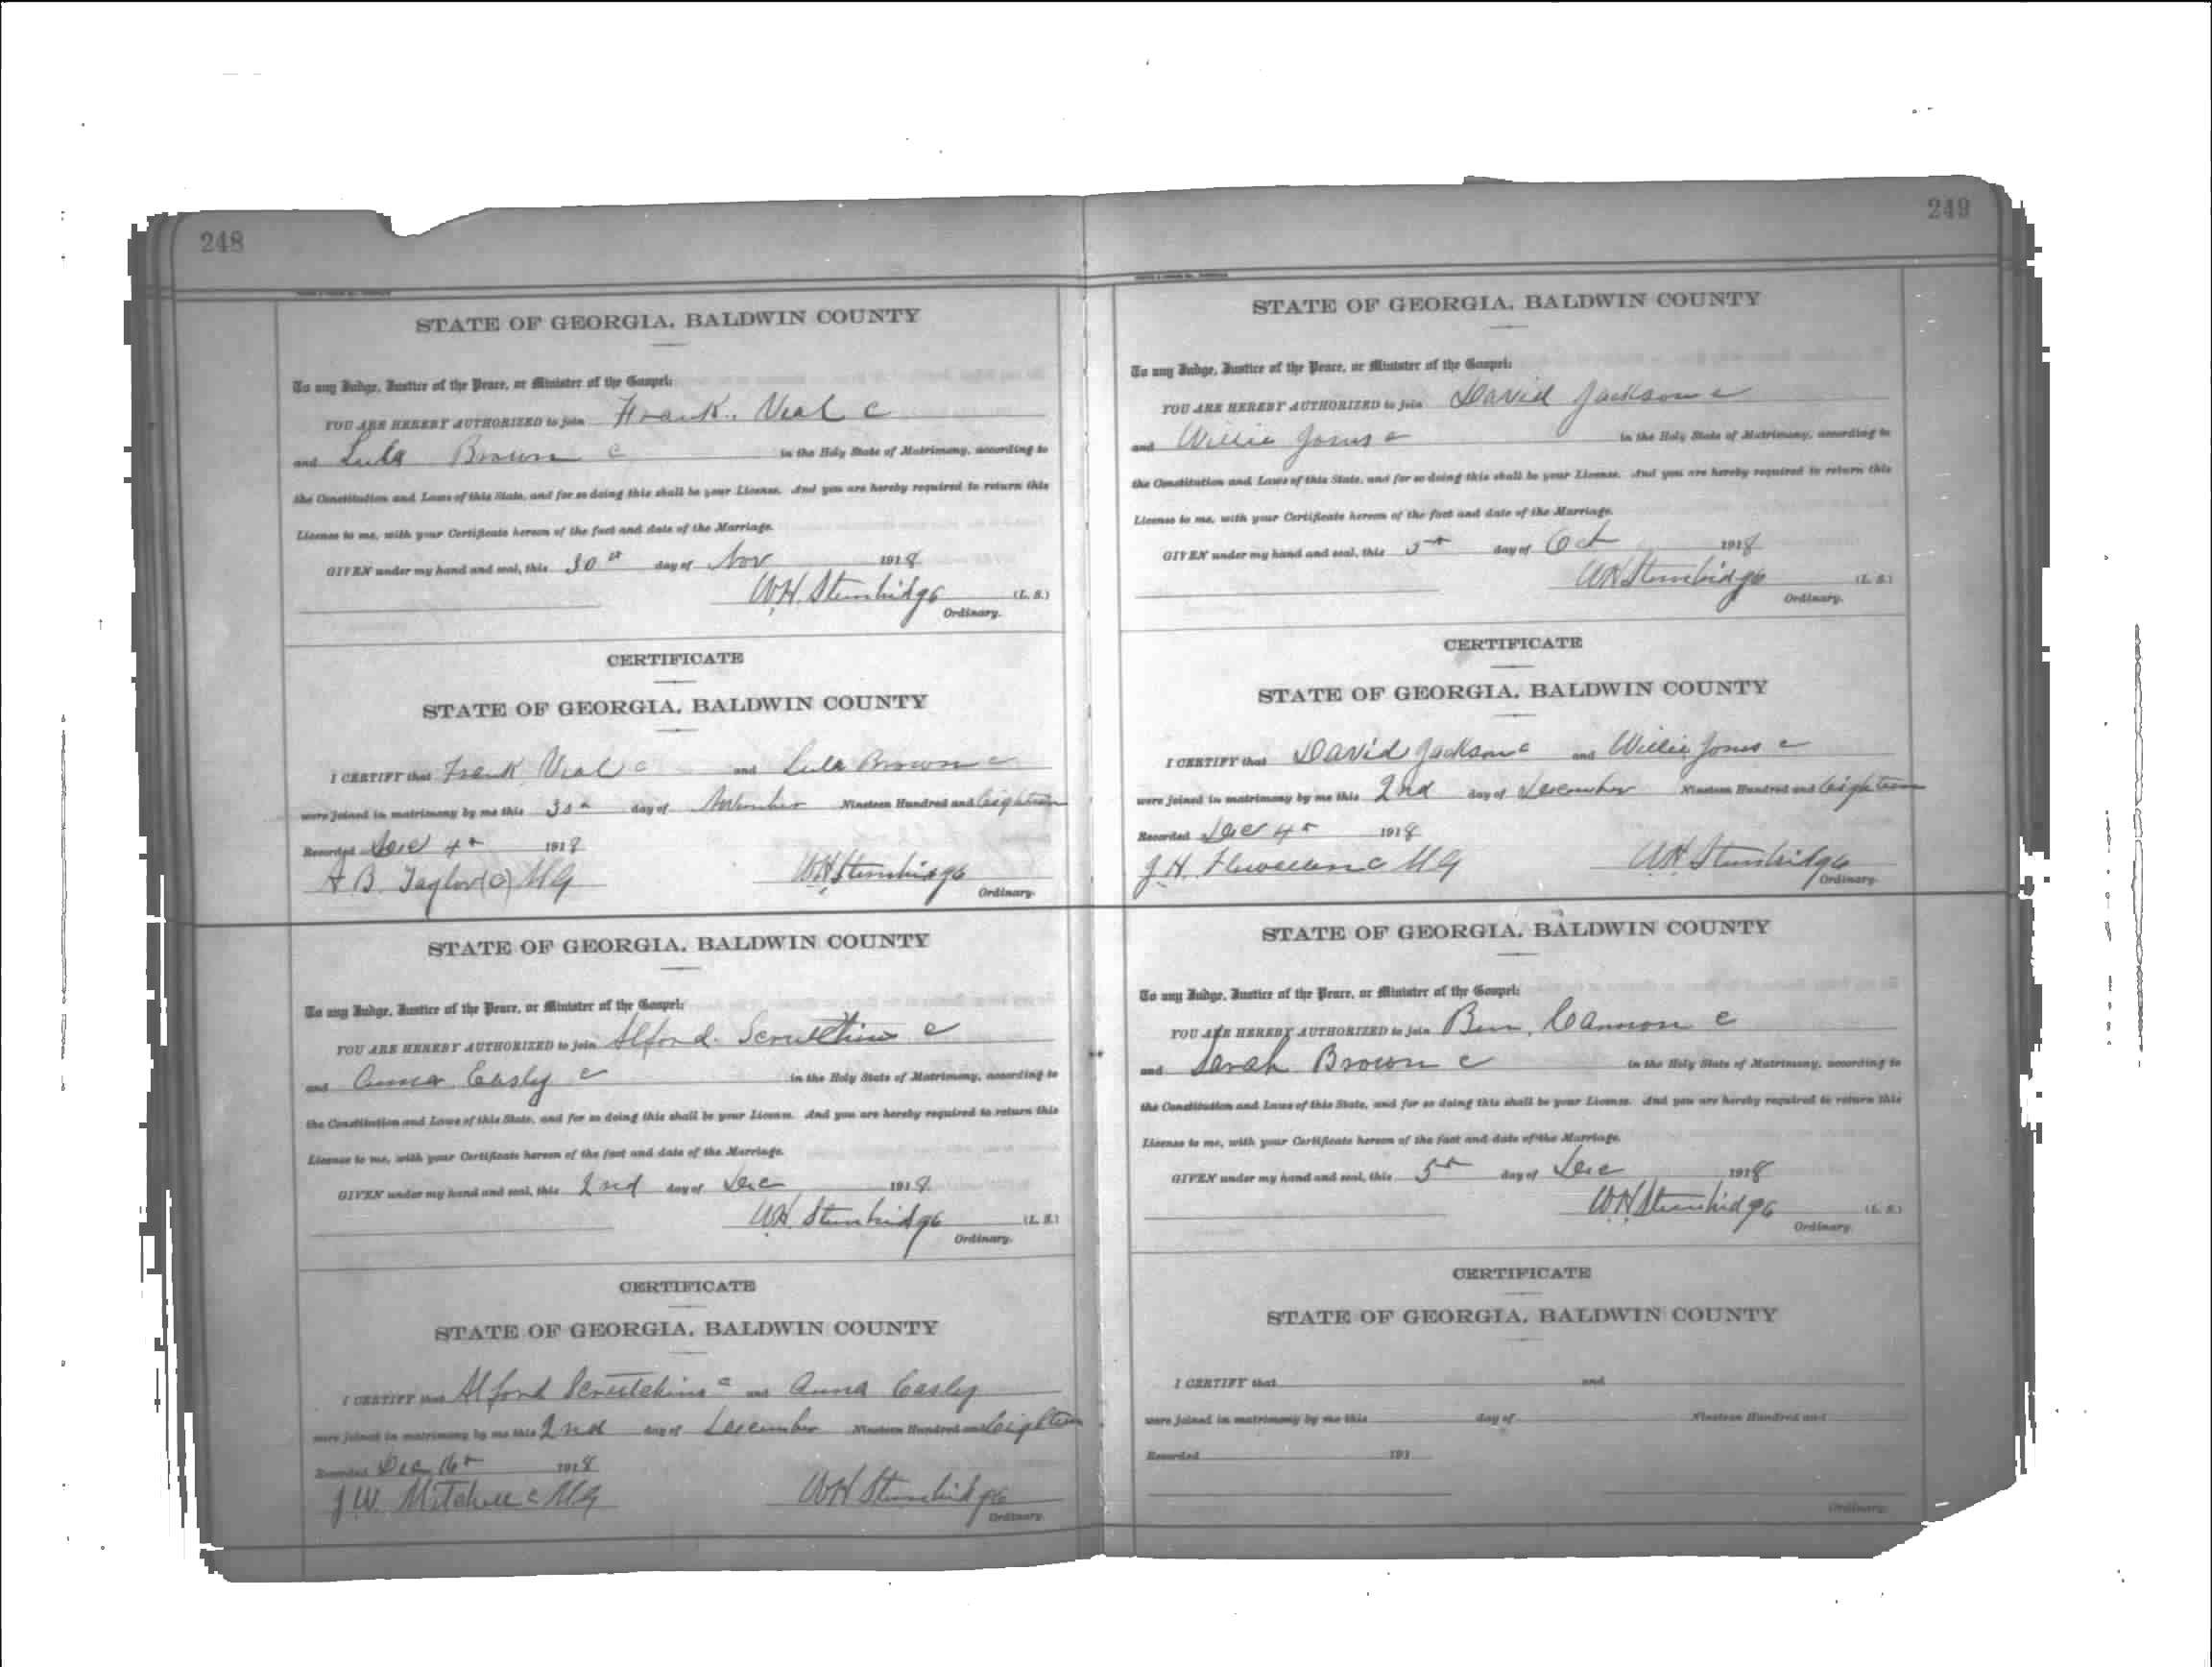 248
STATE OF GEORGIA, BALDWIN COUNTY
To any Judge, Justice of the Peace, or Minister of the Gospel:
YOU ARE HEREBY AUTHORIZED to join Frank Veal c
and Lula Brown c in the Holy State of Matrimony, according to
the Constitution and Laws of this State, and for so doing this shall be your License. And you are hereby required to return this
License to me, with your Certificate hereon of the fact and date of the Marriage.
GIVEN under my hand and seal, this 30th day of Nov 1918
WH. Stembridge (L. S.)
Ordinary.
CERTIFICATE
STATE OF GEORGIA, BALDWIN COUNTY
I CERTIFY that Frank Veal c and Lula Brown c
were joined in matrimony by me this 30th day of November Nineteen Hundred and Eighteen
Recorded Dec 4th 1918
A B. Taylor (c) MG WH Stembridge
Ordinary.
STATE OF GEORGIA, BALDWIN COUNTY
To any Judge, Justice of the Peace, or Minister of the Gospel:
YOU ARE HEREBY AUTHORIZED to join Alford Scrutchins c
and Anna Easly c in the Holy State of Matrimony, according to
the Constitution and Laws of this State, and for so doing this shall be your License. And you are hereby required to return this
License to me, with your Certificate hereon of the fact and date of the Marriage.
GIVEN under my hand and seal, this 2nd day of Dec 1918
WH. Stembridge (L. S.)
Ordinary.
CERTIFICATE
STATE OF GEORGIA, BALDWIN COUNTY
I CERTIFY that Alford Scrutchins c and Anna Easly
were joined in matrimony by me this 2nd day of December Nineteen Hundred and Eighteen
Recorded Dec 16th 1918
J W. Mitchell c MG WH Stembridge
Ordinary.
249
STATE OF GEORGIA, BALDWIN COUNTY
To any Judge, Justice of the Peace, or Minister of the Gospel:
YOU ARE HEREBY AUTHORIZED to join David Jackson c
and Willie Jones c in the Holy State of Matrimony, according to
the Constitution and Laws of this State, and for so doing this shall be your License. And you are hereby required to return this
License to me, with your Certificate hereon of the fact and date of the Marriage.
GIVEN under my hand and seal, this 5th day of Oct 1918
WH Stembridge (L. S.)
Ordinary.
CERTIFICATE
STATE OF GEORGIA, BALDWIN COUNTY
I CERTIFY that David Jackson c and Willie Jones c
were joined in matrimony by me this 2nd day of December Nineteen Hundred and Eighteen
Recorded Dec 4th 1918
J. H. Flewellen c MG WH Stembridge
Ordinary.
STATE OF GEORGIA, BALDWIN COUNTY
To any Judge, Justice of the Peace, or Minister of the Gospel:
YOU ARE HEREBY AUTHORIZED to join Ben Cannon c
and Sarah Brown c in the Holy State of Matrimony, according to
the Constitution and Laws of this State, and for so doing this shall be your License. And you are hereby required to return this
License to me, with your Certificate hereon of the fact and date of the Marriage.
GIVEN under my hand and seal, this 5th day of Dec 1918
WH Stembridge (L. S.)
Ordinary.
CERTIFICATE
STATE OF GEORGIA, BALDWIN COUNTY
I CERTIFY that and
were joined in matrimony by me this day of Nineteen Hundred and
Recorded 191
Ordinary.